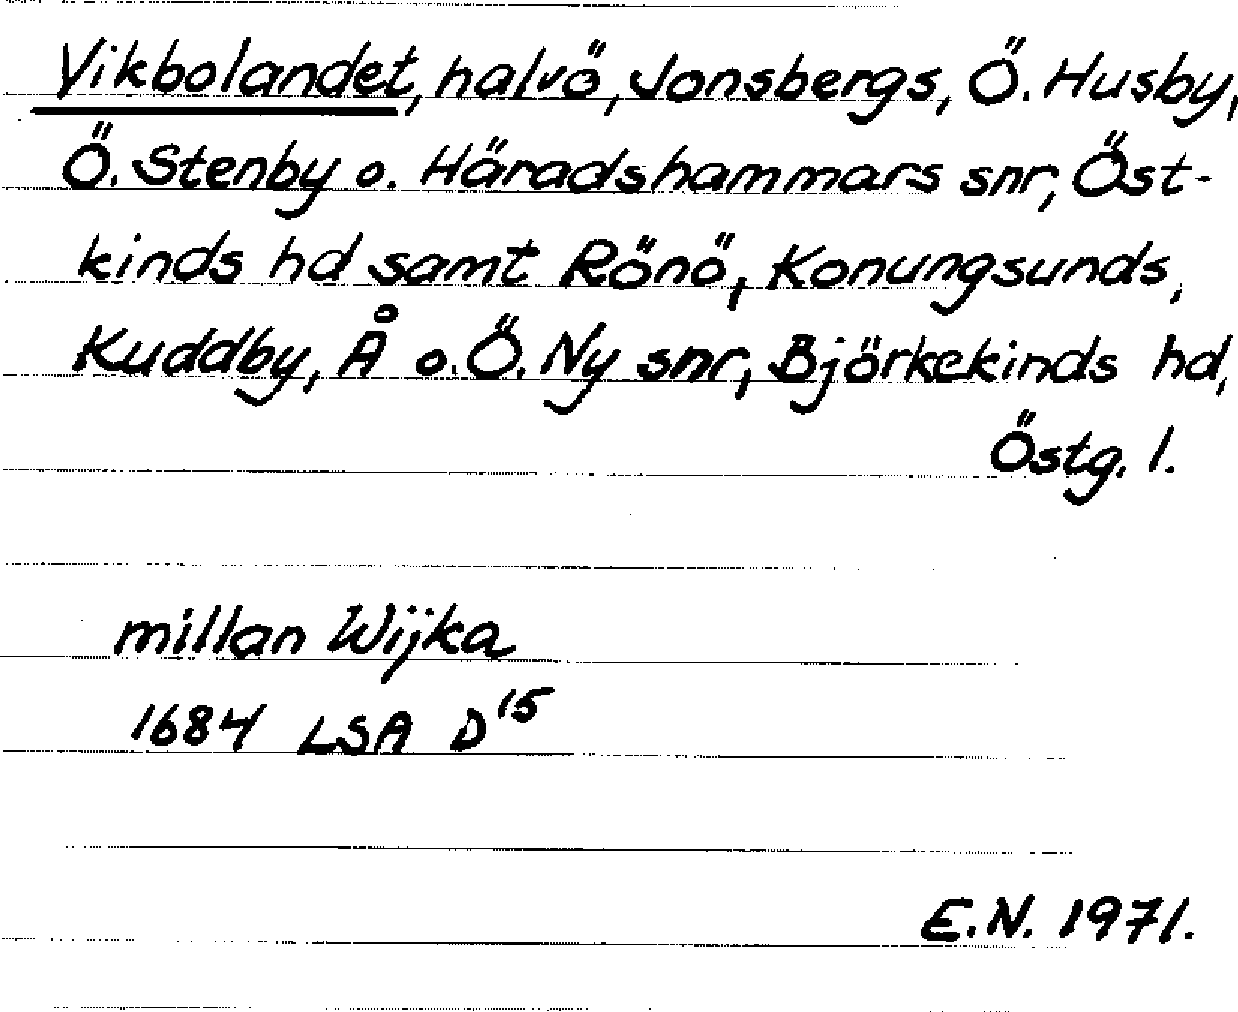 Vikbolandet, halvö, Jonsbergs, Ö. Husby,
Ö. Stenby o. Häradshammars snr, Öst-
kinds hd samt Rönö, Konungsunds,
Kuddby, Å o. Ö. Ny snr, Björkekinds hd,
Östg. l.
millan Wijka
1684 LSA D15
E.N. 1971.